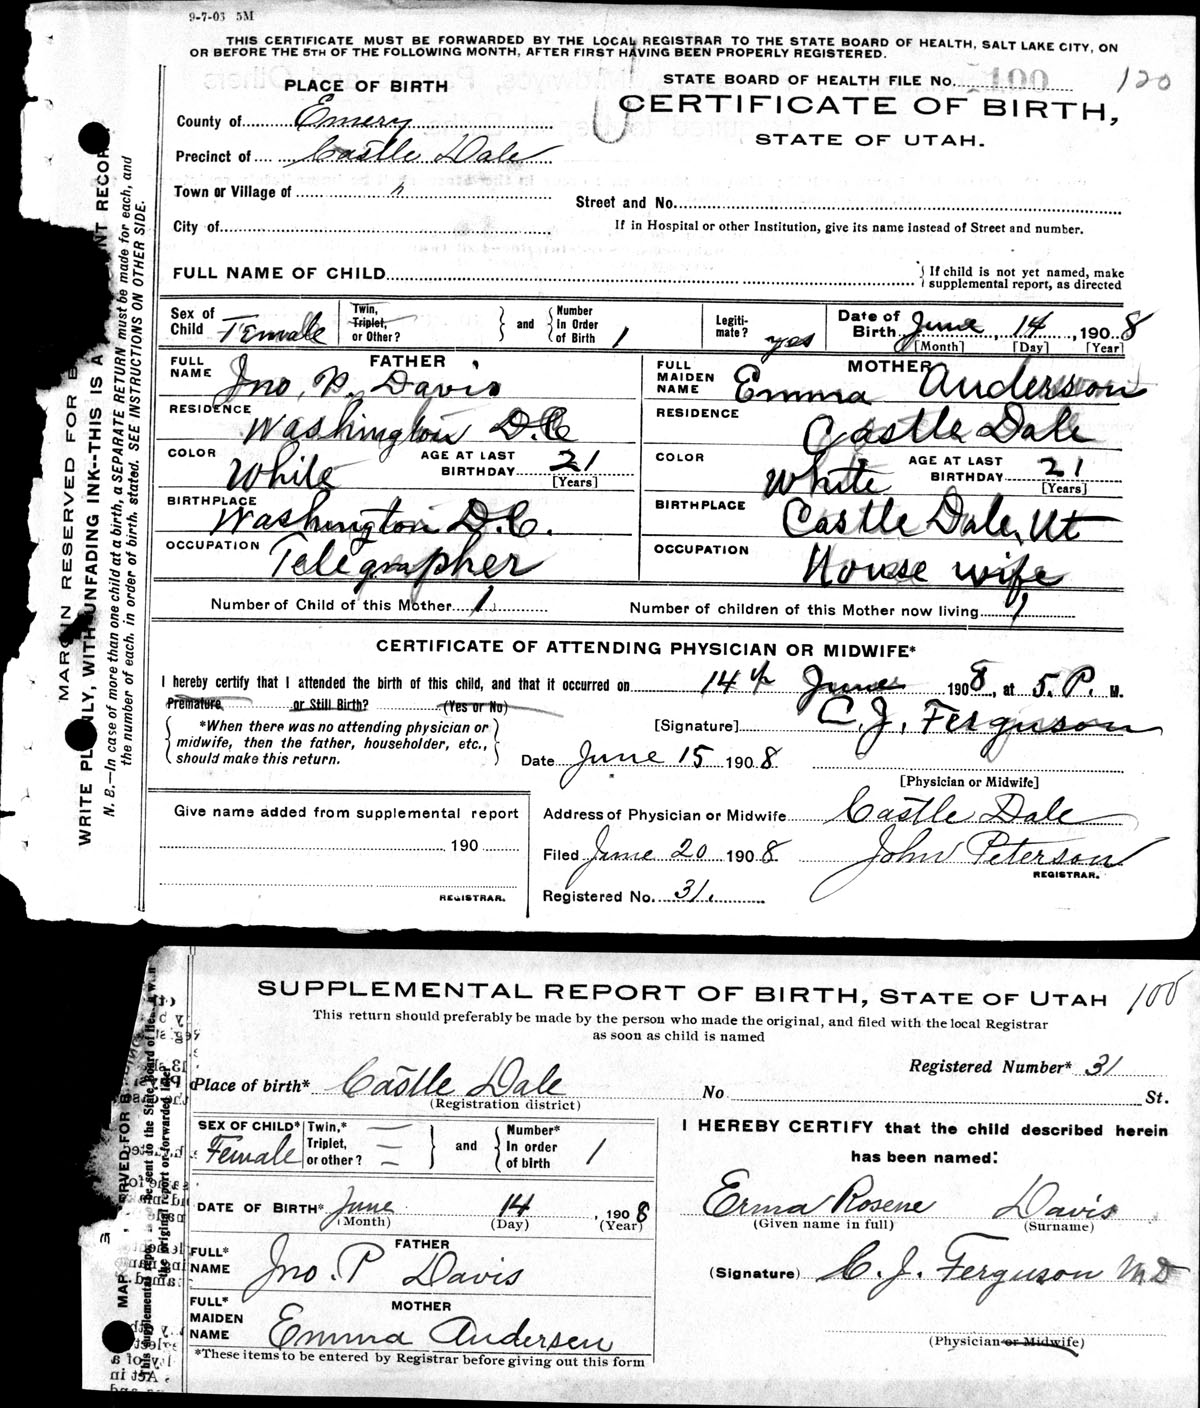 9-7-03 5M
THIS CERTIFICATE MUST BE FORWARDED BY THE LOCAL REGISTRAR TO THE STATE BOARD OF HEALTH, SALT LAKE CITY, ON
OR BEFORE THE 5TH OF THE FOLLOWING MONTH, AFTER FIRST HAVING BEEN PROPERLY REGISTERED.
STATE BOARD OF HEALTH FILE No. 100 120
PLACE OF BIRTH
CERTIFICATE OF BIRTH,
STATE OF UTAH.
County of Emery
Precinct of Castle Dale
Town or Village of "
Street and No.
City of
If in Hospital or other Institution, give its name instead of Street and number.
FULL NAME OF CHILD
If child is not yet named, make
supplemental report, as directed
Sex of Child Female
Twin, Triplet, or Other? and Number In Order of Birth 1
Legiti-mate? yes
Date of Birth June 14, 1908
[Month] [Day] [Year]
FATHER
FULL NAME Jno. P. Davis
RESIDENCE Washington D.C
COLOR White AGE AT LAST BIRTHDAY 21 [Years]
BIRTHPLACE Washington D.C.
OCCUPATION Telegrapher
MOTHER
FULL MAIDEN NAME Emma Anderson
RESIDENCE Castle Dale
COLOR White AGE AT LAST BIRTHDAY 21 [Years]
BIRTHPLACE Castle Dale, Ut
OCCUPATION House wife
Number of Child of this Mother 1 Number of children of this Mother now living 1
CERTIFICATE OF ATTENDING PHYSICIAN OR MIDWIFE*
I hereby certify that I attended the birth of this child, and that it occurred on 14th June 1908, at 5. P. M.
Premature or Still Birth? (Yes or No)
*When there was no attending physician or
midwife, then the father, householder, etc.,
should make this return.
[Signature] C. J. Ferguson
Date June 15 1908
[Physician or Midwife]
Give name added from supplemental report
190
REGISTRAR.
Address of Physician or Midwife Castle Dale
Filed June 20 1908 John Peterson
REGISTRAR.
Registered No. 31.
MARGIN RESERVED FOR B
WRITE PL NLY, WITH UNFADING INK--THIS IS A NT RECOR
N. B.—In case of more than one child at a birth, a SEPARATE RETURN must be made for each, and
the number of each, in order of birth, stated. SEE INSTRUCTIONS ON OTHER SIDE.
SUPPLEMENTAL REPORT OF BIRTH, STATE OF UTAH 100
This return should preferably be made by the person who made the original, and filed with the local Registrar
as soon as child is named
Registered Number* 31
Place of birth* Castle Dale No St.
(Registration district)
SEX OF CHILD* Female
Twin,* Triplet, or other? and Number* In order of birth 1
DATE OF BIRTH* June 14, 1908
(Month) (Day) (Year)
FATHER
FULL* NAME Jno. P Davis
MOTHER
FULL* MAIDEN NAME Emma Andersen
*These items to be entered by Registrar before giving out this form
I HEREBY CERTIFY that the child described herein
has been named:
Erma Rosene Davis
(Given name in full) (Surname)
(Signature) C. J. Ferguson M D
(Physician or Midwife)